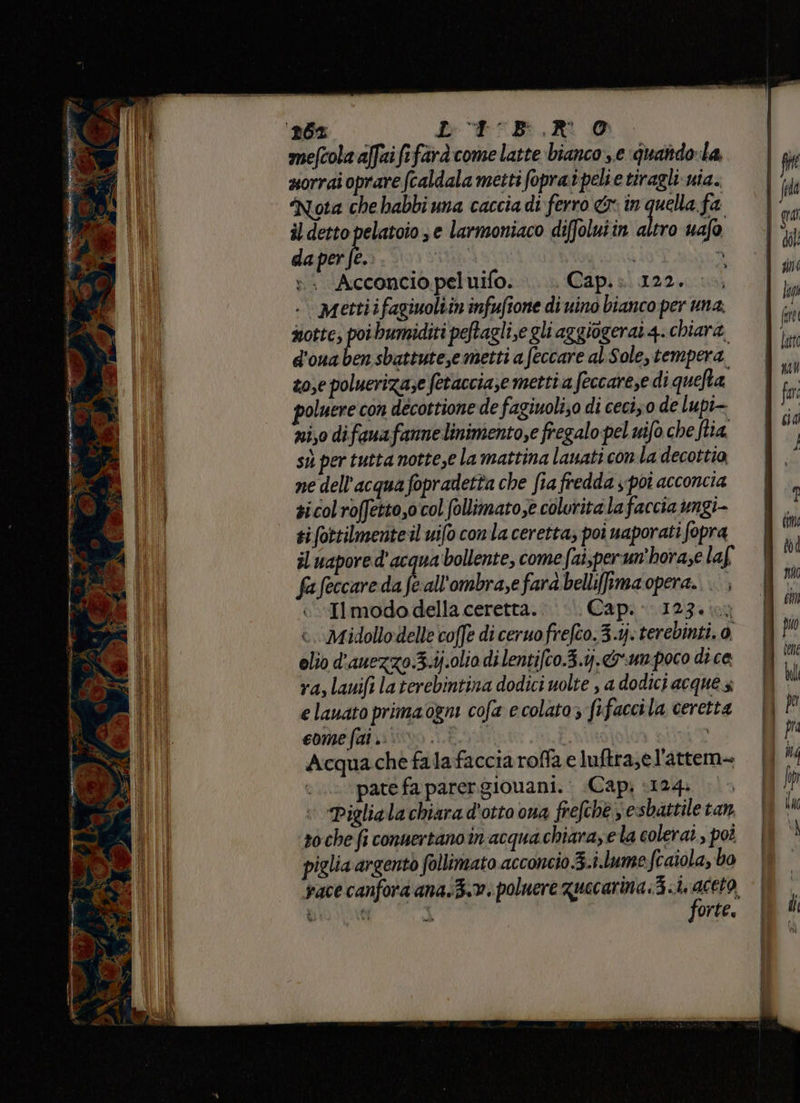 262 LIBRO
meſcola aſſai ſi farà come latte bianco, e quando la
vorrai oprare ſcaldala metti ſopra i peli e tiragli uia.
Nota che habbi una caccia di ferro & in quella fa
il detto pelatoio, e larmoniaco diſſolui in altro uaſo
da per ſe.
Acconcio pel uiſo. Cap. 122.
Metti i fagiuoli in infuſione di uino bianco per una
notte, poi humiditi peſtagli, e gli aggiogerai 4. chiara
d'oua ben sbattute, e metti a ſeccare al Sole, tempera
to, e polueriza, e ſetaccia, e metti a ſeccare, e di queſta
poluere con decottione de fagiuoli, o di ceci, o de lupi-
ni, o di faua fanne linimento, e fregalo pel uiſo che ſtia
sù per tutta notte, e la mattina lauati con la decottio
ne dell'acqua ſopradetta che ſia fredda, poi acconcia
ti col roſſetto, o col ſollimato, e colorita la faccia ungi-
ti ſottilmente il uiſo con la ceretta, poi uaporati ſopra
il uapore d'acqua bollente, come ſai, per un'hora, e laſ
ſa ſeccare da ſe all'ombra, e farà belliſſima opera.
Il modo della ceretta. Cap. 123.
Midollo delle coſſe di ceruo freſco. ℥.ij. terebinti. o
olio d'auezzo. ℥.ij. olio di lentiſco. ℥.ij. & un poco di ce
ra, lauiſi la terebintina dodici uolte, a dodici acque,
e lauato prima ogni coſa e colato, ſi facci la ceretta
come ſai.
Acqua che fa la faccia roſſa e luſtra, e l'attem-
pate fa parer giouani. Cap. 124.
Piglia la chiara d'otto oua freſche, e sbattile tan
to che ſi conuertano in acqua chiara, e la colerai, poi
piglia argento ſollimato acconcio. ℥.i. lume ſcaiola, bo
race canfora ana. ℥.v. poluere zuccarina. ℥.i. aceto
forte.